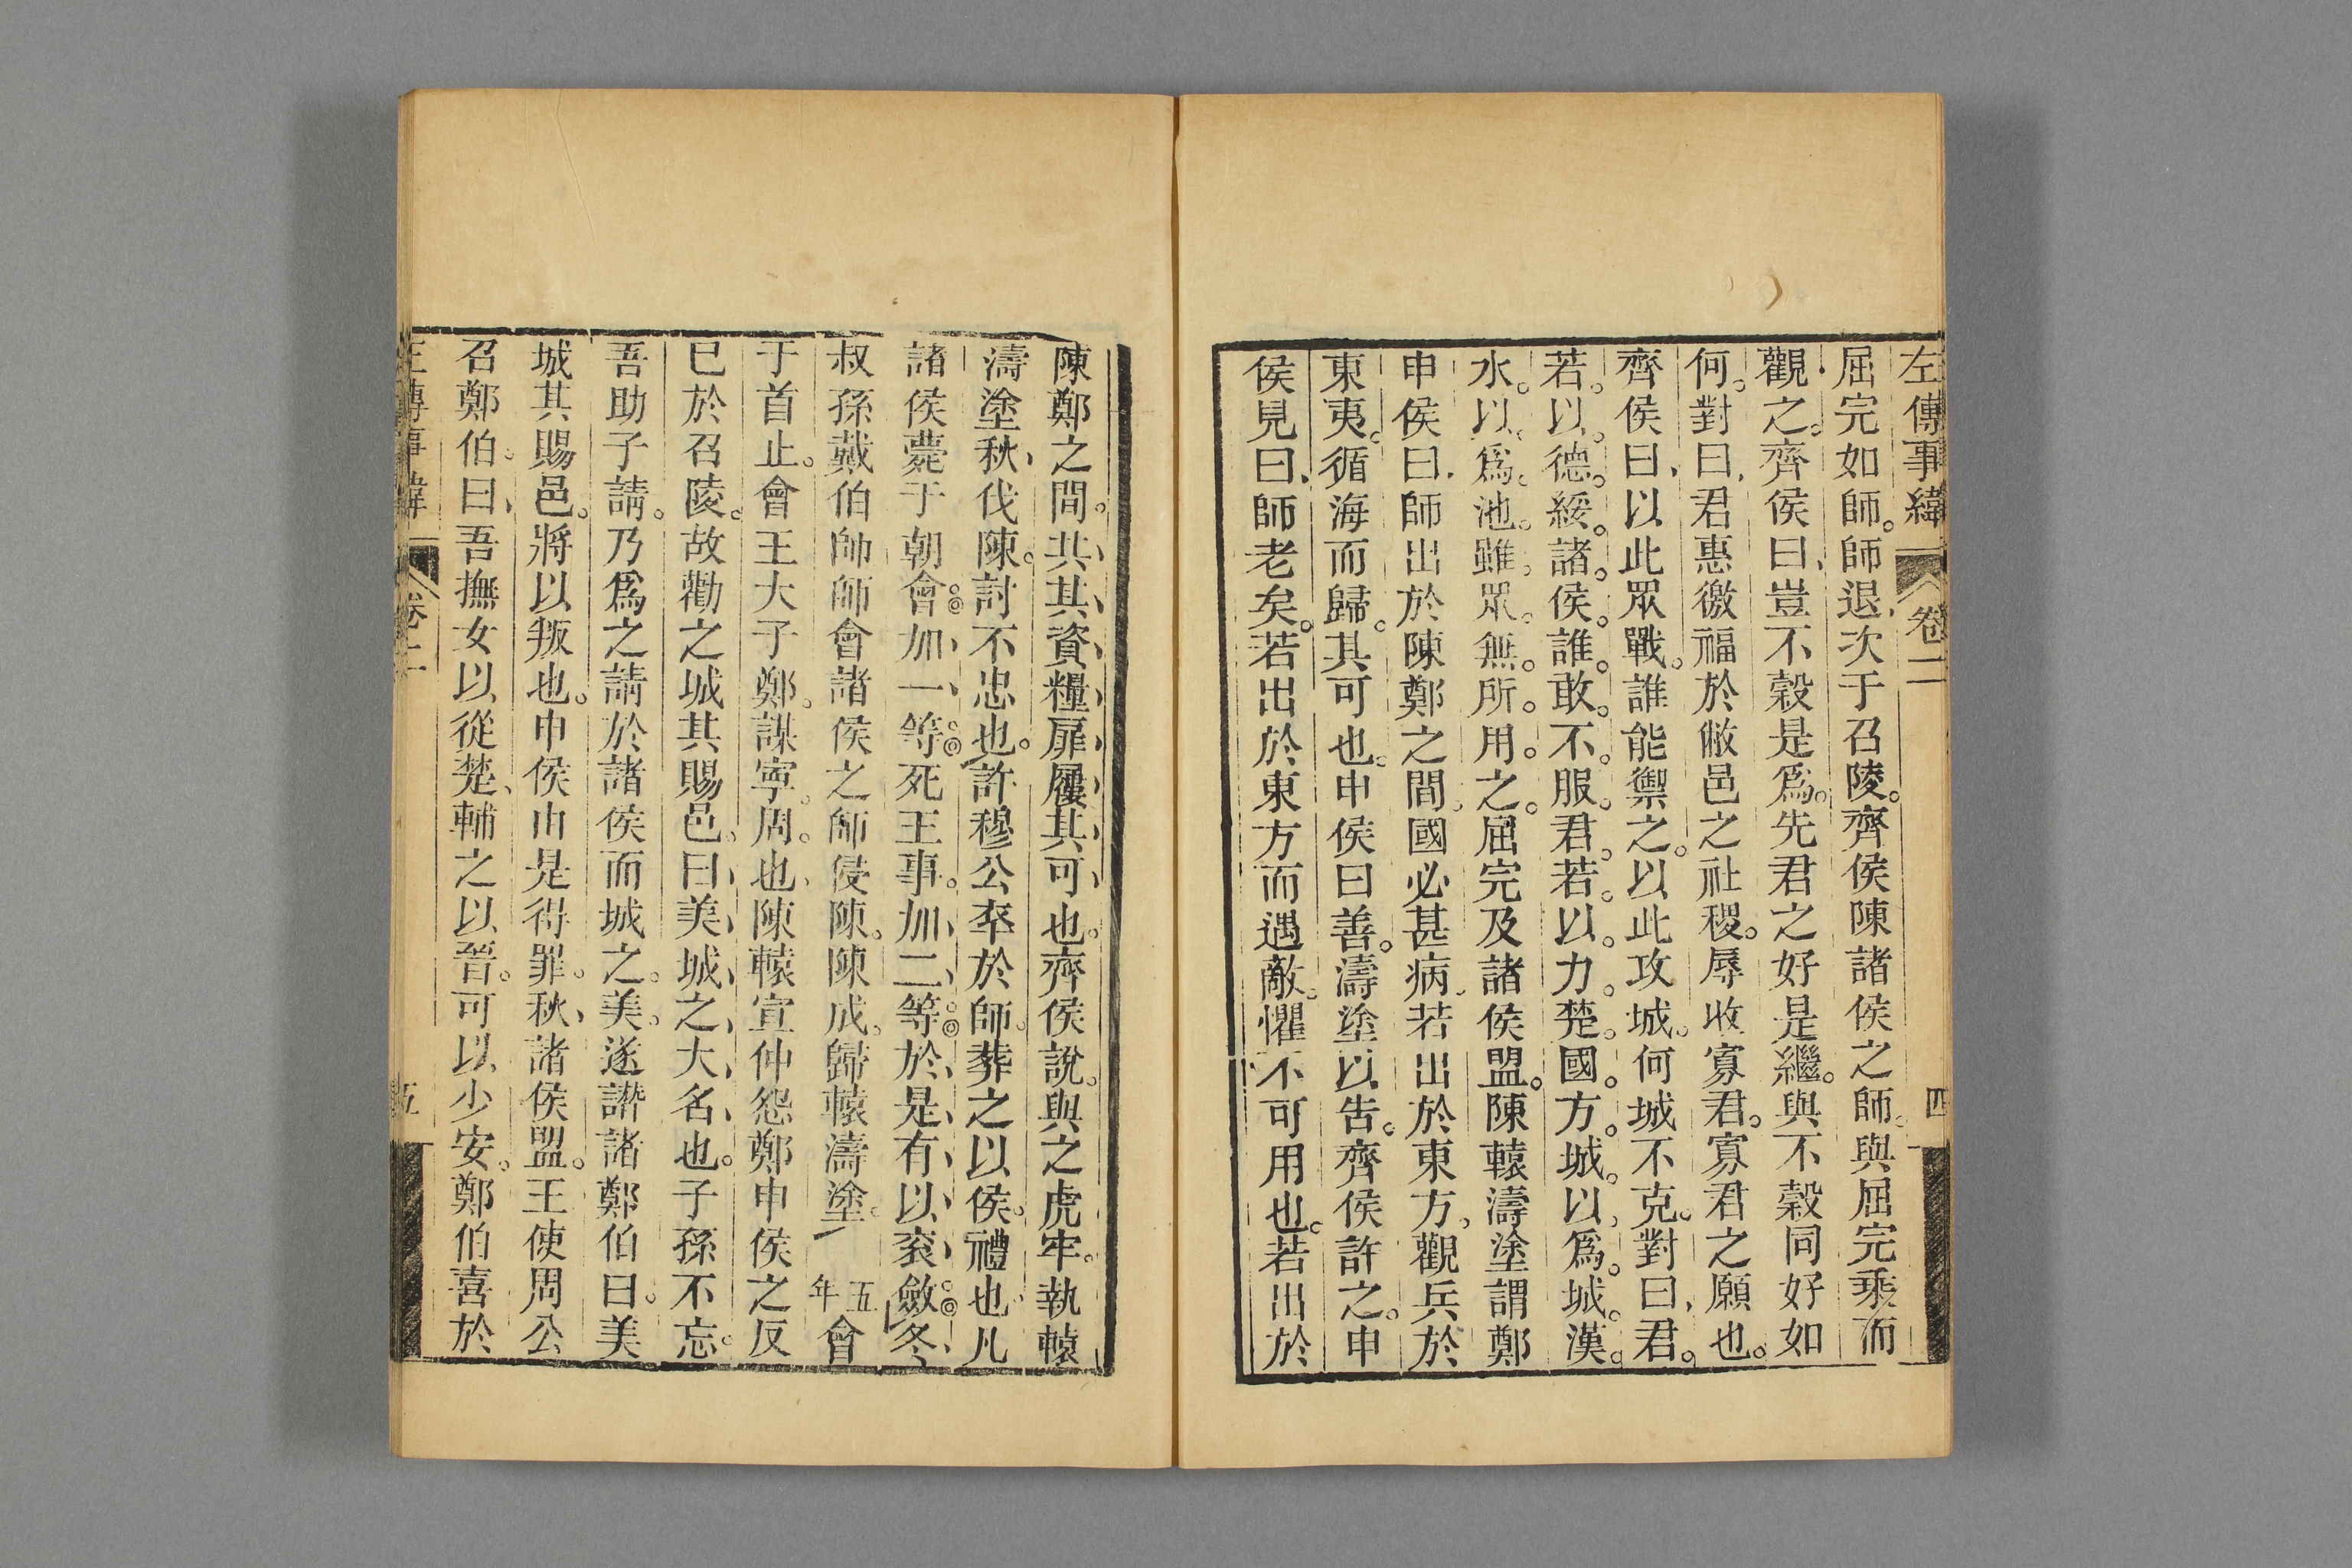 左傳事緯 卷二 四
屈完如師。師退、次于召陵。齊侯陳諸侯之師。與屈完乘而
觀之。齊侯曰、豈不穀是爲。先君之好是繼。與不穀同好如
何。對曰、君惠徼福於敝邑之社稷。辱收寡君。寡君之願也。
齊侯曰、以此眾戰。誰能禦之。以此攻城。何城不克。對曰、君。
若。以。德。綏。諸。侯。誰。敢。不。服。君。若。以。力。楚。國。方。城。以。爲。城。漢。
水。以。爲。池。雖。眾。無。所。用。之。屈完及諸侯盟。陳轅濤塗謂鄭
申侯曰、師出於陳鄭之間。國必甚病。若出於東方。觀兵於
東夷。循海而歸。其可也。申侯曰善。濤塗以告。齊侯許之。申
侯見曰、師老矣。若出於東方而遇敵。懼不可用也。若出於
陳鄭之間。共、其、資、糧、屝、屨、其、可、也。齊侯說。與之虎牢。執轅
濤塗秋、伐陳。討不忠也。許穆公卒於師。葬之以侯。禮也。凡
諸侯薨于朝會。加、一、等。死王事。加、二、等。於、是、有、以、袞、斂。冬、
叔孫戴伯帥師會諸侯之師侵陳。陳成。歸轅濤塗。五年會
于首止。會王大子鄭。謀寧。周。也、陳轅宣仲怨鄭申侯之反
已於召陵。故勸之城其賜邑。曰、美、城、之、大、名、也。子孫不忘。
吾助子請。乃爲之請於諸侯而城之。美。遂譖諸鄭伯曰。美
城其賜邑。將以叛也。申侯由是得罪。秋、諸侯盟。王使周公
召鄭伯。曰、吾撫女以從楚、輔之以晉。可以少安。鄭伯喜於
左傳事緯 卷二 五